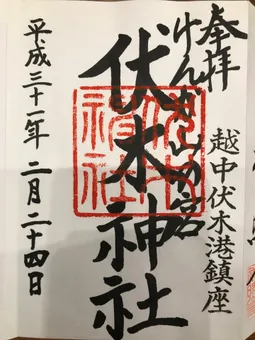 奉拝
越中伏木港鎮座
けんかやまの宮
伏木神社
平成三十一年二月二十四日